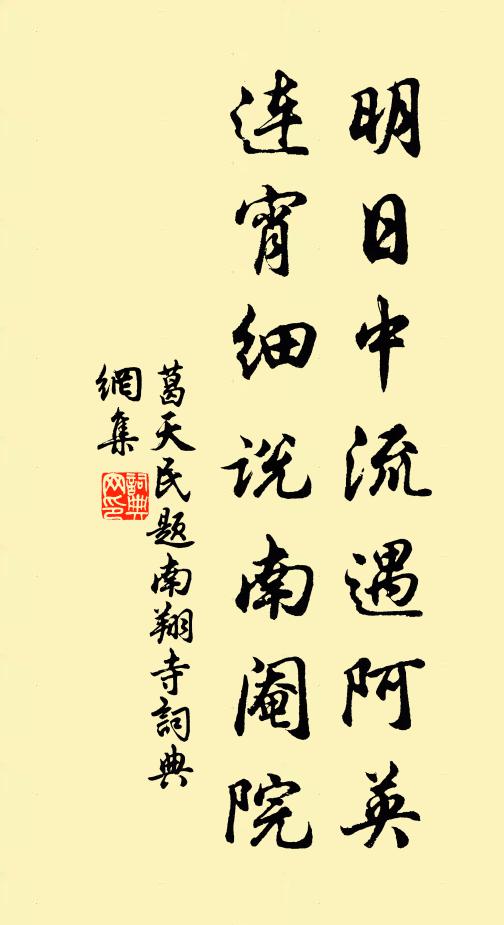 明日中流遇阿英
連宵细说南阉院
葛天民题南翔寺詞典
網集
詞典网印